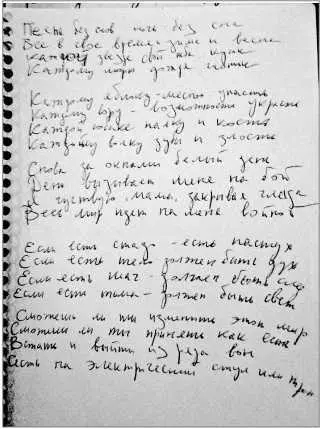 Песнь без слов ночь без сна
Все в свое время зима и весна
Каждой звезде свой неба кусок
Каждому морю дождя глоток
Каждому яблоку - место упасть
Каждому вору - возможность украсть
Каждой собаке палку и кость
Каждому волку зубы и злость
Снова за окнами белый день
День вызывает меня на бой
Я чувствую мама, закрывая глаза
Весь мир идет на меня войной
Если есть стадо - есть пастух
Если есть тело должен быть дух
Если есть шаг - должен быть след
Если есть тьма - должен быть свет
Сможешь ли ты изменить этот мир
Сможешь ли ты принять как есть
Встать и выйти из ряда вон
Сесть на электрический стул или трон